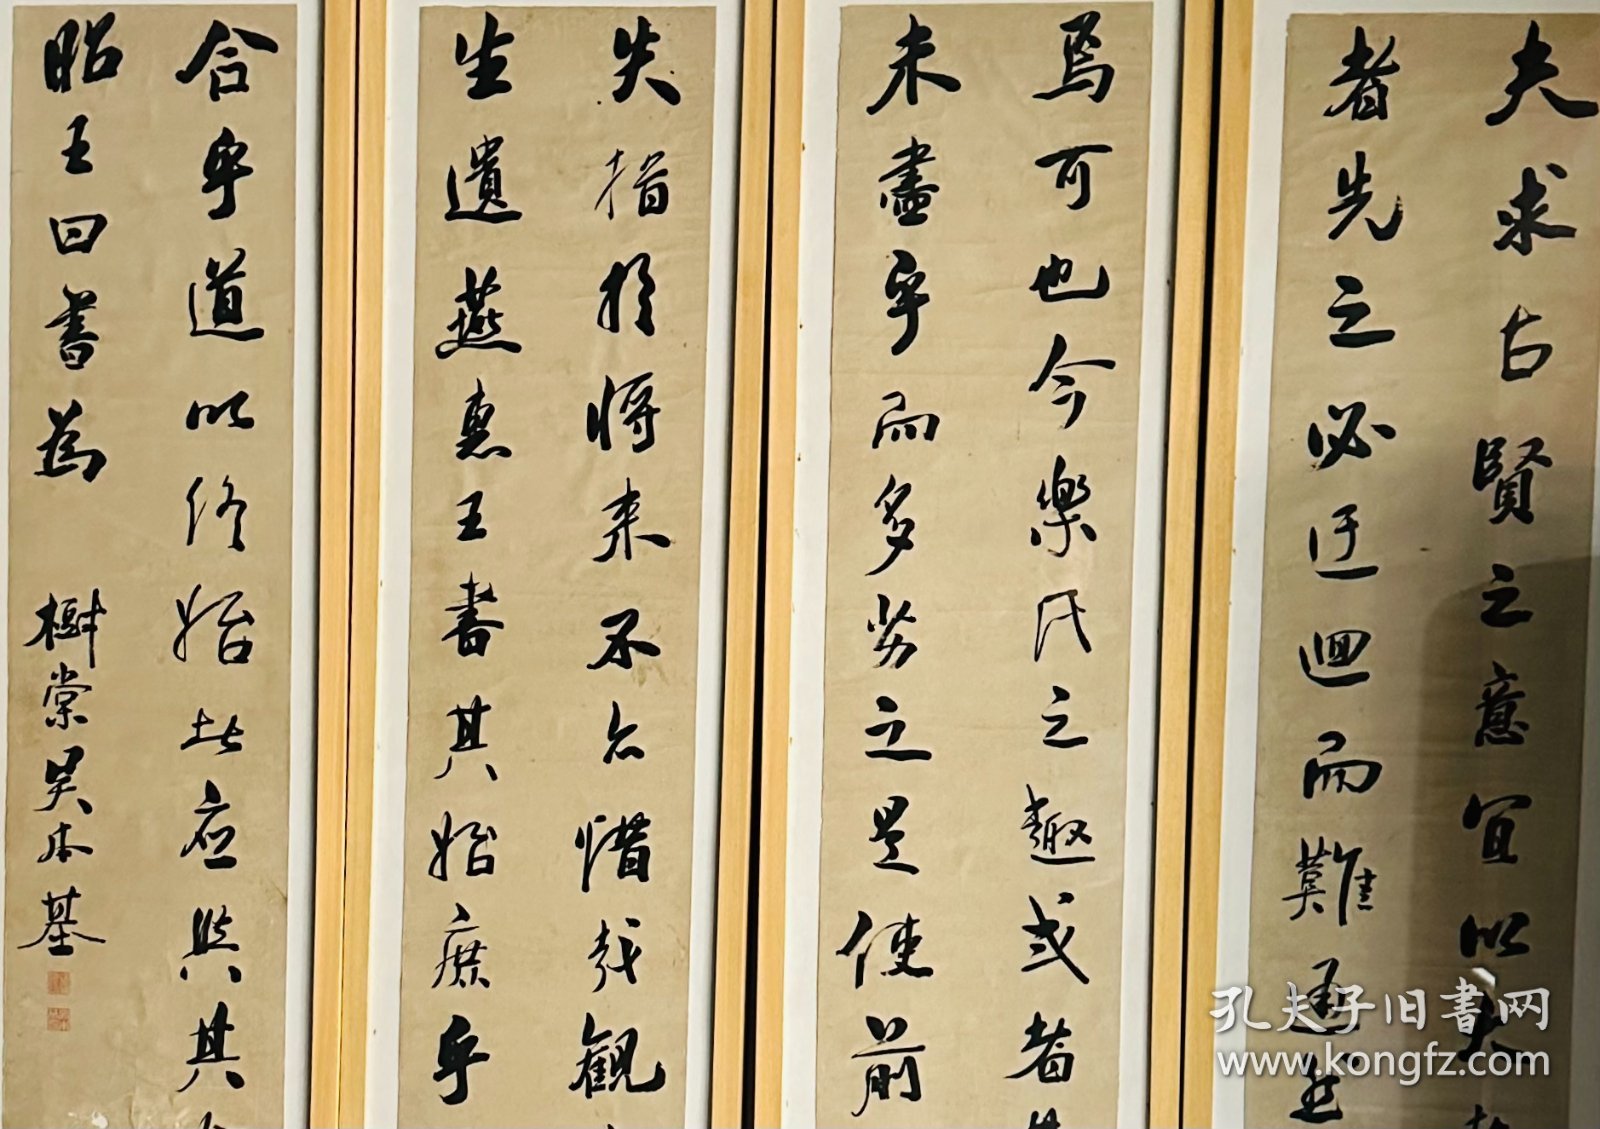 夫求古賢之意宜以大
者先之必迂迴而難通然
焉可也今樂氏之趣或者其
未盡乎而多劣之是使前
失指於將來不亦惜哉觀
生遺燕惠王書其始庶乎
合乎道以終始此應與其
昭王曰書為
樹棠吳本基
孔夫子旧書网
www.kongfz.com